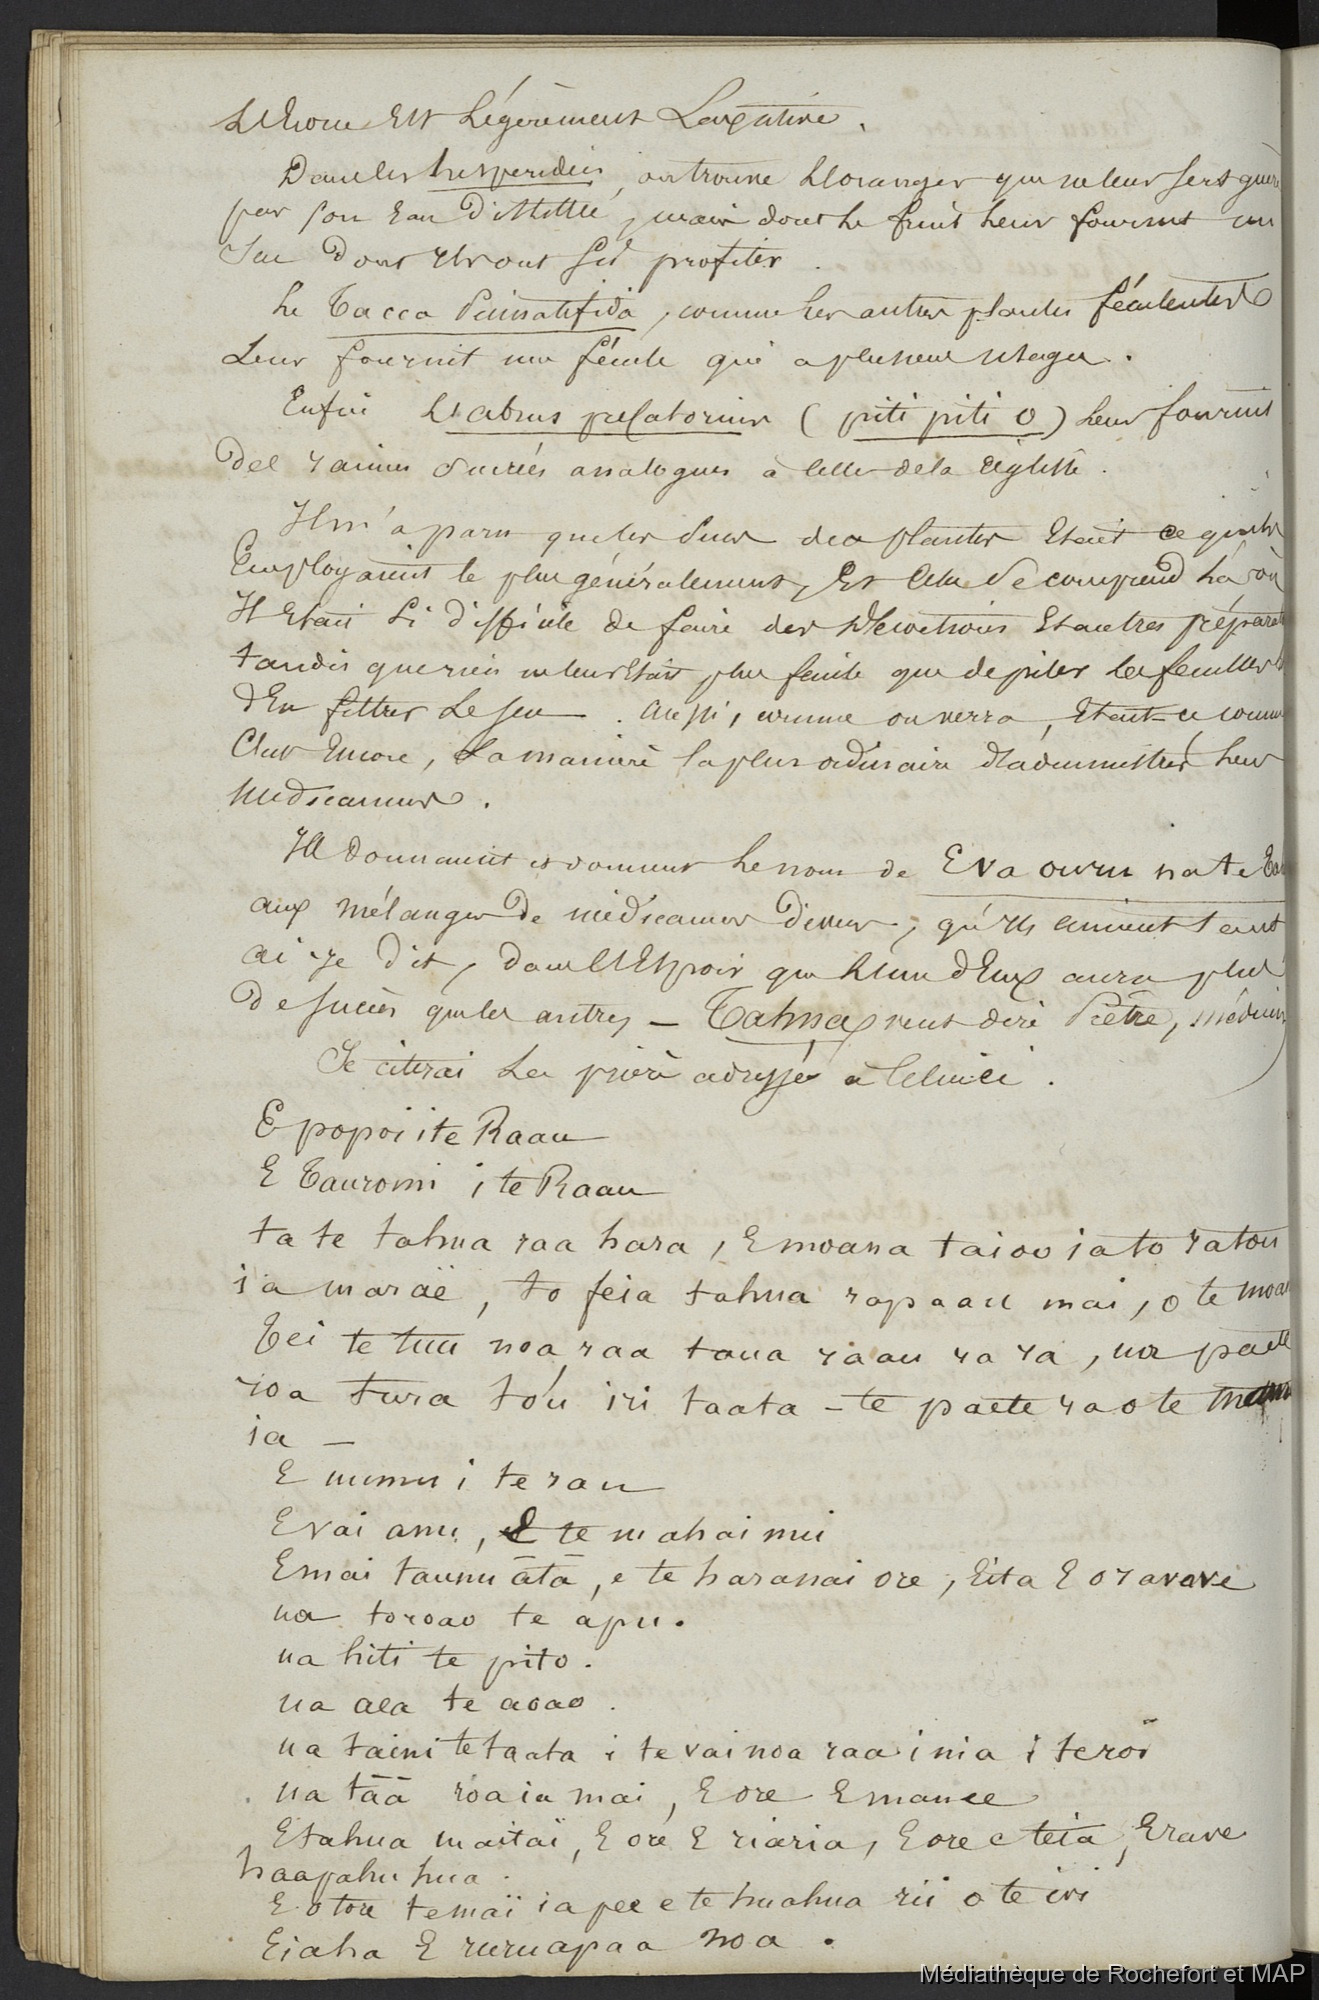 est légèrement Laxative.
Dans les hespéridées, on trouve l'oranger qui ne leur sert guère
par son Eau Distillée, mais dont le fruit leur fournit un
Suc Dont ils ont sû profiter.
Le Tacca Pinnatifida, comme les autres plantes féculentes
Leur fournit une fécule qui a plusieurs usages.
Enfin L'abrus precatorius (piti piti o) leur fournit
Des racines sucrées analogues à celles de la Réglisse.
Il m'a paru que les sucs des plantes Etait ce qu'ils
Employaient le plus généralement, Et Cela se comprend là où
Il Etait si difficile de faire des Décoctions Et autres prépara
tandis que rien ne leur Etait plus facile que de piler les feuilles
d'En filtrer Le suc. Aussi, comme on verra, Etait-ce comme
C'est Encore, La manière la plus ordinaire d'administrer leurs
médicamens.
Ils Donnaient et donnent le nom de Eva ouru na te
aux mélanges De médicamens divers, qu'ils aiment tant
ai-je dit, dans l'Espoir que L'un d'Eux aura plus
De succès que les autres — Tahua veut dire Prêtre, médecin
Je citerai La prière adressée à Celui ci.
E popoi i te Raau
E Tauromi i te Raau
ta te tahua raa hara, E moana taioo ia to ratou
ia maraë, to feia tahua rapaau mai, o te moa
Tei te tuu noa raa taua raau ra ra, ua paete
roa tura tóu iri taata - te paete ra o te
ia —
E numu i te rau
E vai anu, E te mahai mui
E mai taunu ātā, e te haranai ore, Eita E oravave
ua toroao te apu.
ua hiti te pito.
ua aea te aoao.
ua taini te taata i te vai noa raa i nia i te roï
ua tāā roa ia mai, E ore E manee
E tahua maitaï, E ore E riaria, E ore e teia, E rave
haapahu hua.
E otoe te maï ia pee e te huahua rii o te ivi
Eiaha E ruruapaa noa.
Médiathèque de Rochefort et MAP